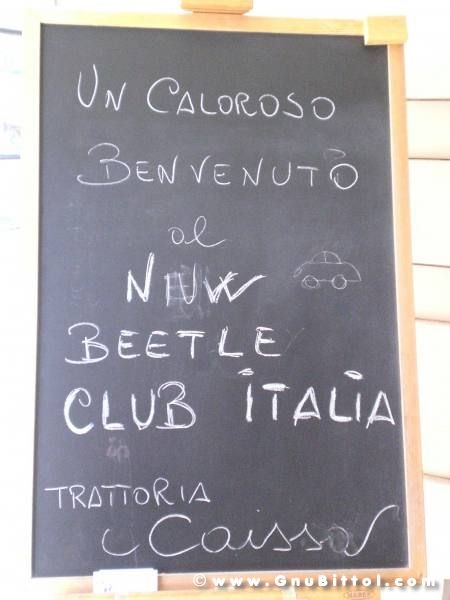 UN CALOROSO
BENVENUTO
al
NUW
BEETLE
CLUB ITALIA
TRATTORIA
Caissa
© www.GnuBittol.com